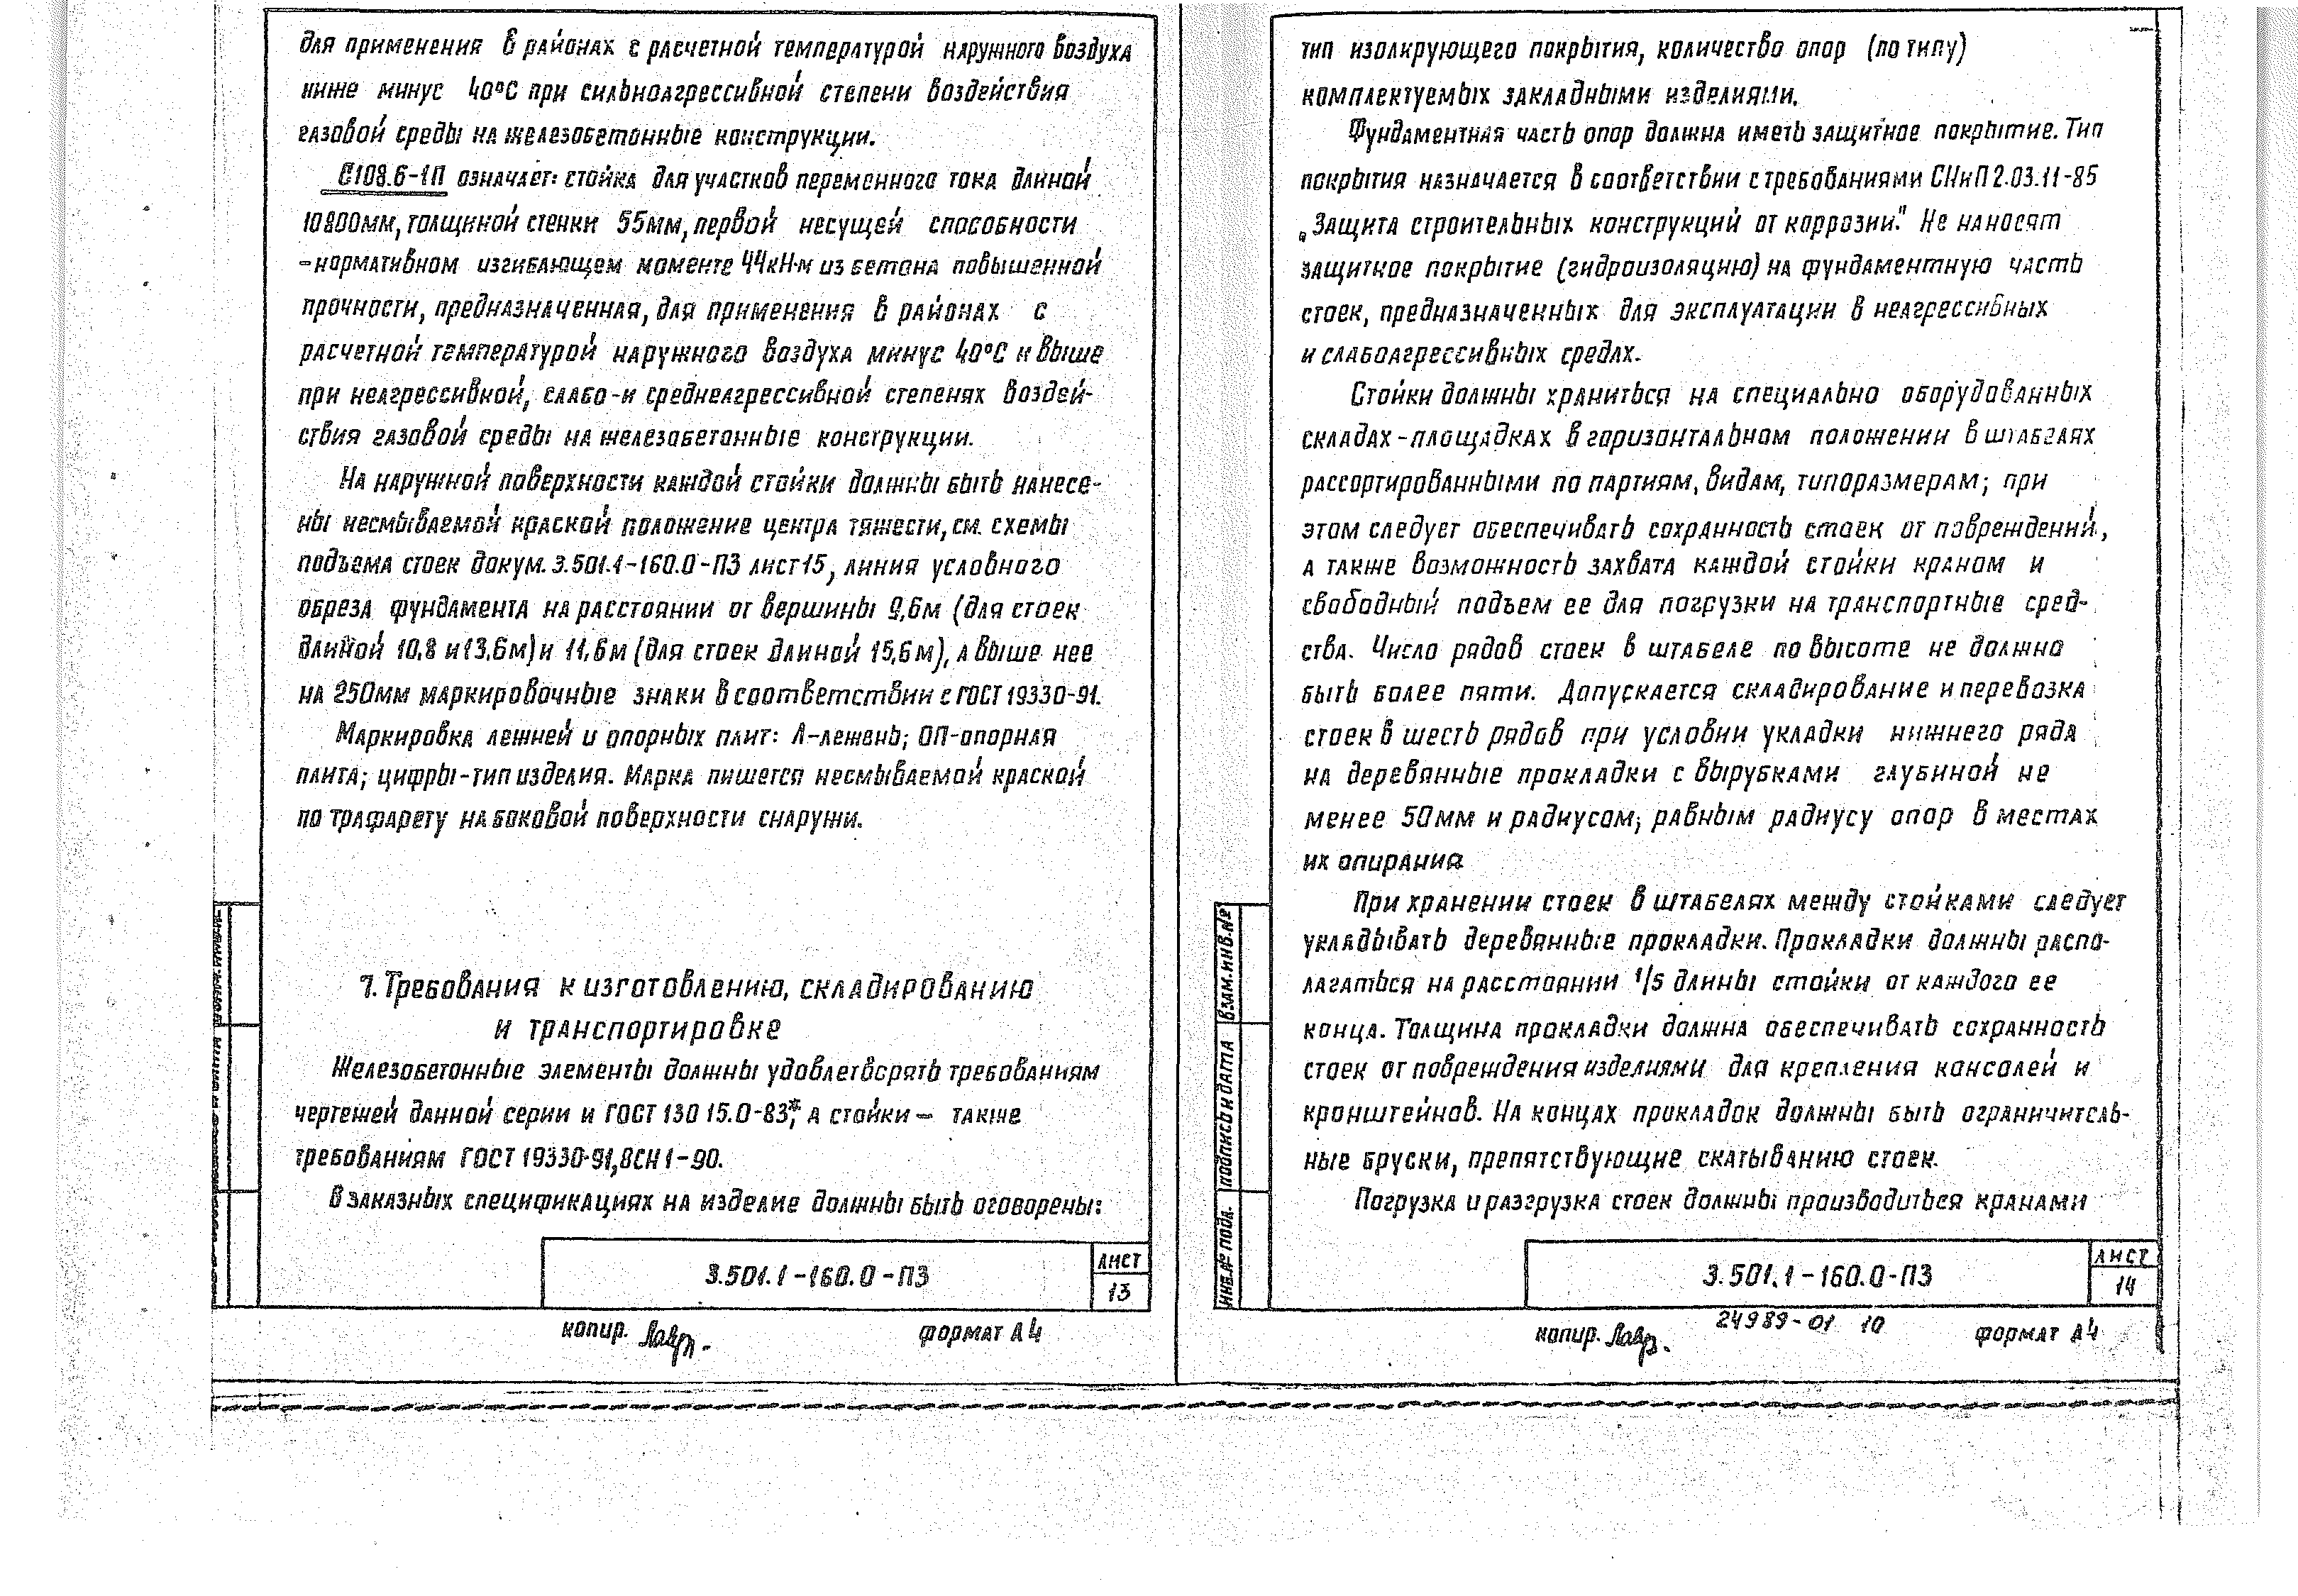 для применения в районах с расчетной температурой наружного воздуха
ниже минус 40°С при сильноагрессивной степени воздействия
газовой среды на железобетонные конструкции.
С108.6-1П означает: стойка для участков переменного тока длиной
10800мм, толщиной стенки 55мм, первой несущей способности
-нормативном изгибающем моменте 44кН·м из бетона повышенной
прочности, предназначенная, для применения в районах с
расчетной температурой наружного воздуха минус 40°С и выше
при неагрессивной, слабо-и среднеагрессивной степенях воздей-
ствия газовой среды на железобетонные конструкции.
На наружной поверхности каждой стойки должны быть нанесе-
ны несмываемой краской положение центра тяжести, см. схемы
подъема стоек докум. 3.501.1-160.0-ПЗ лист 15, линия условного
обреза фундамента на расстоянии от вершины 9,6м (для стоек
длиной 10,8 и 13,6м) и 11,6м (для стоек длиной 15,6м), а выше нее
на 250мм маркировочные знаки в соответствии с ГОСТ 19330-91.
Маркировка лежней и опорных плит: Л-лежень; ОП-опорная
плита; цифры-тип изделия. Марка пишется несмываемой краской
по трафарету на боковой поверхности снаружи.
7. Требования к изготовлению, складированию
и транспортировке
Железобетонные элементы должны удовлетворять требованиям
чертежей данной серии и ГОСТ 13015.0-83*, а стойки - также
требованиям ГОСТ 19330-91, ВСН 1-90.
В заказных спецификациях на изделие должны быть оговорены:
3.501.1-160.0-ПЗ
лист
13
копир.
формат А4
тип изолирующего покрытия, количество опор (по типу)
комплектуемых закладными изделиями.
Фундаментная часть опор должна иметь защитное покрытие. Тип
покрытия назначается в соответствии с требованиями СНиП 2.03.11-85
„Защита строительных конструкций от коррозии". Не наносят
защитное покрытие (гидроизоляцию) на фундаментную часть
стоек, предназначенных для эксплуатации в неагрессивных
и слабоагрессивных средах.
Стойки должны храниться на специально оборудованных
складах-площадках в горизонтальном положении в штабелях
рассортированными по партиям, видам, типоразмерам; при
этом следует обеспечивать сохранность стоек от повреждений,
а также возможность захвата каждой стойки краном и
свободный подъем ее для погрузки на транспортные сред-
ства. Число рядов стоек в штабеле по высоте не должно
быть более пяти. Допускается складирование и перевозка
стоек в шесть рядов при условии укладки нижнего ряда
на деревянные прокладки с вырубками глубиной не
менее 50мм и радиусом, равным радиусу опор в местах
их опирания
При хранении стоек в штабелях между стойками следует
укладывать деревянные прокладки. Прокладки должны распо-
лагаться на расстоянии 1/5 длины стойки от каждого ее
конца. Толщина прокладки должна обеспечивать сохранность
стоек от повреждения изделиями для крепления консолей и
кронштейнов. На концах прокладок должны быть ограничитель-
ные бруски, препятствующие скатыванию стоек.
Погрузка и разгрузка стоек должны производиться кранами
взам.инв.№
подпись и дата
инв.№ подл.
3.501.1-160.0-ПЗ
лист
14
копир.
24989-01 10
формат А4